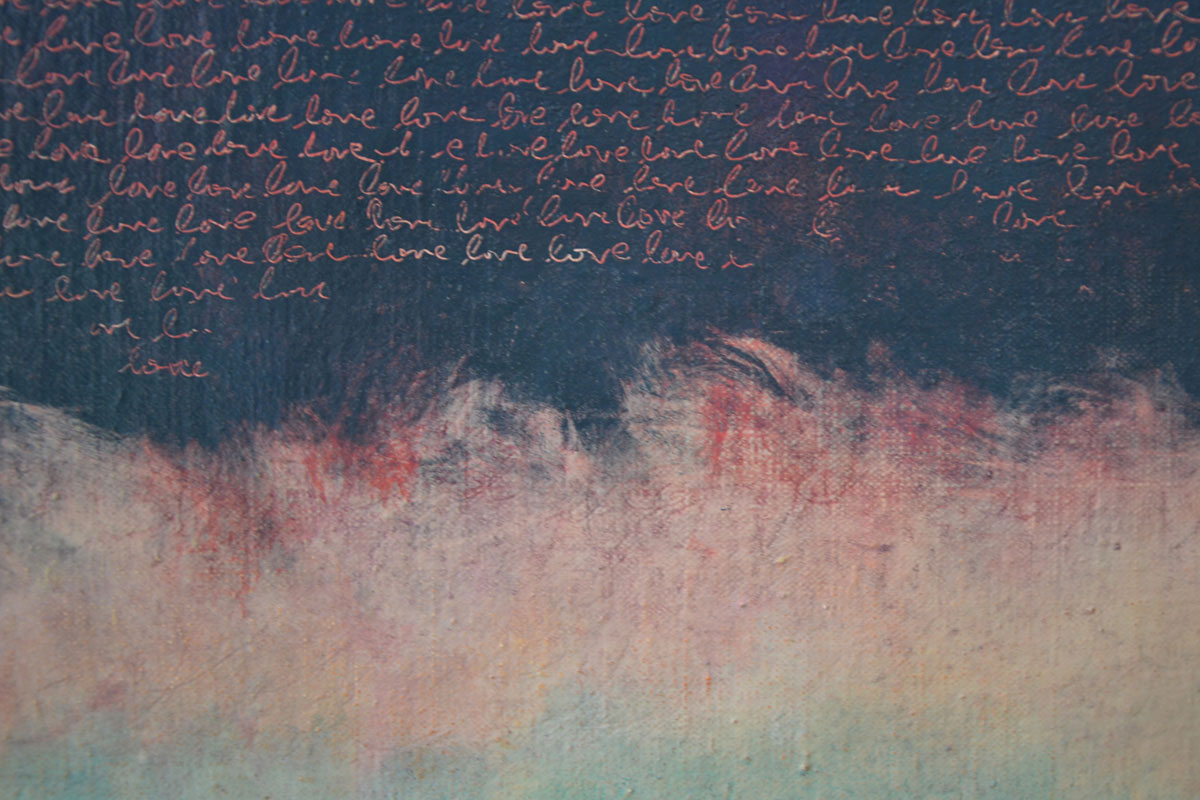 love love love love love love love love love
love love love love love love love love love love love love
love love love love love love love love love love love love
love love love love love love love love love love love
love love love love love love love love love love love
love love love love love love love love love
love love love love love love love love love
love love love love love love love love
love love love
love
love